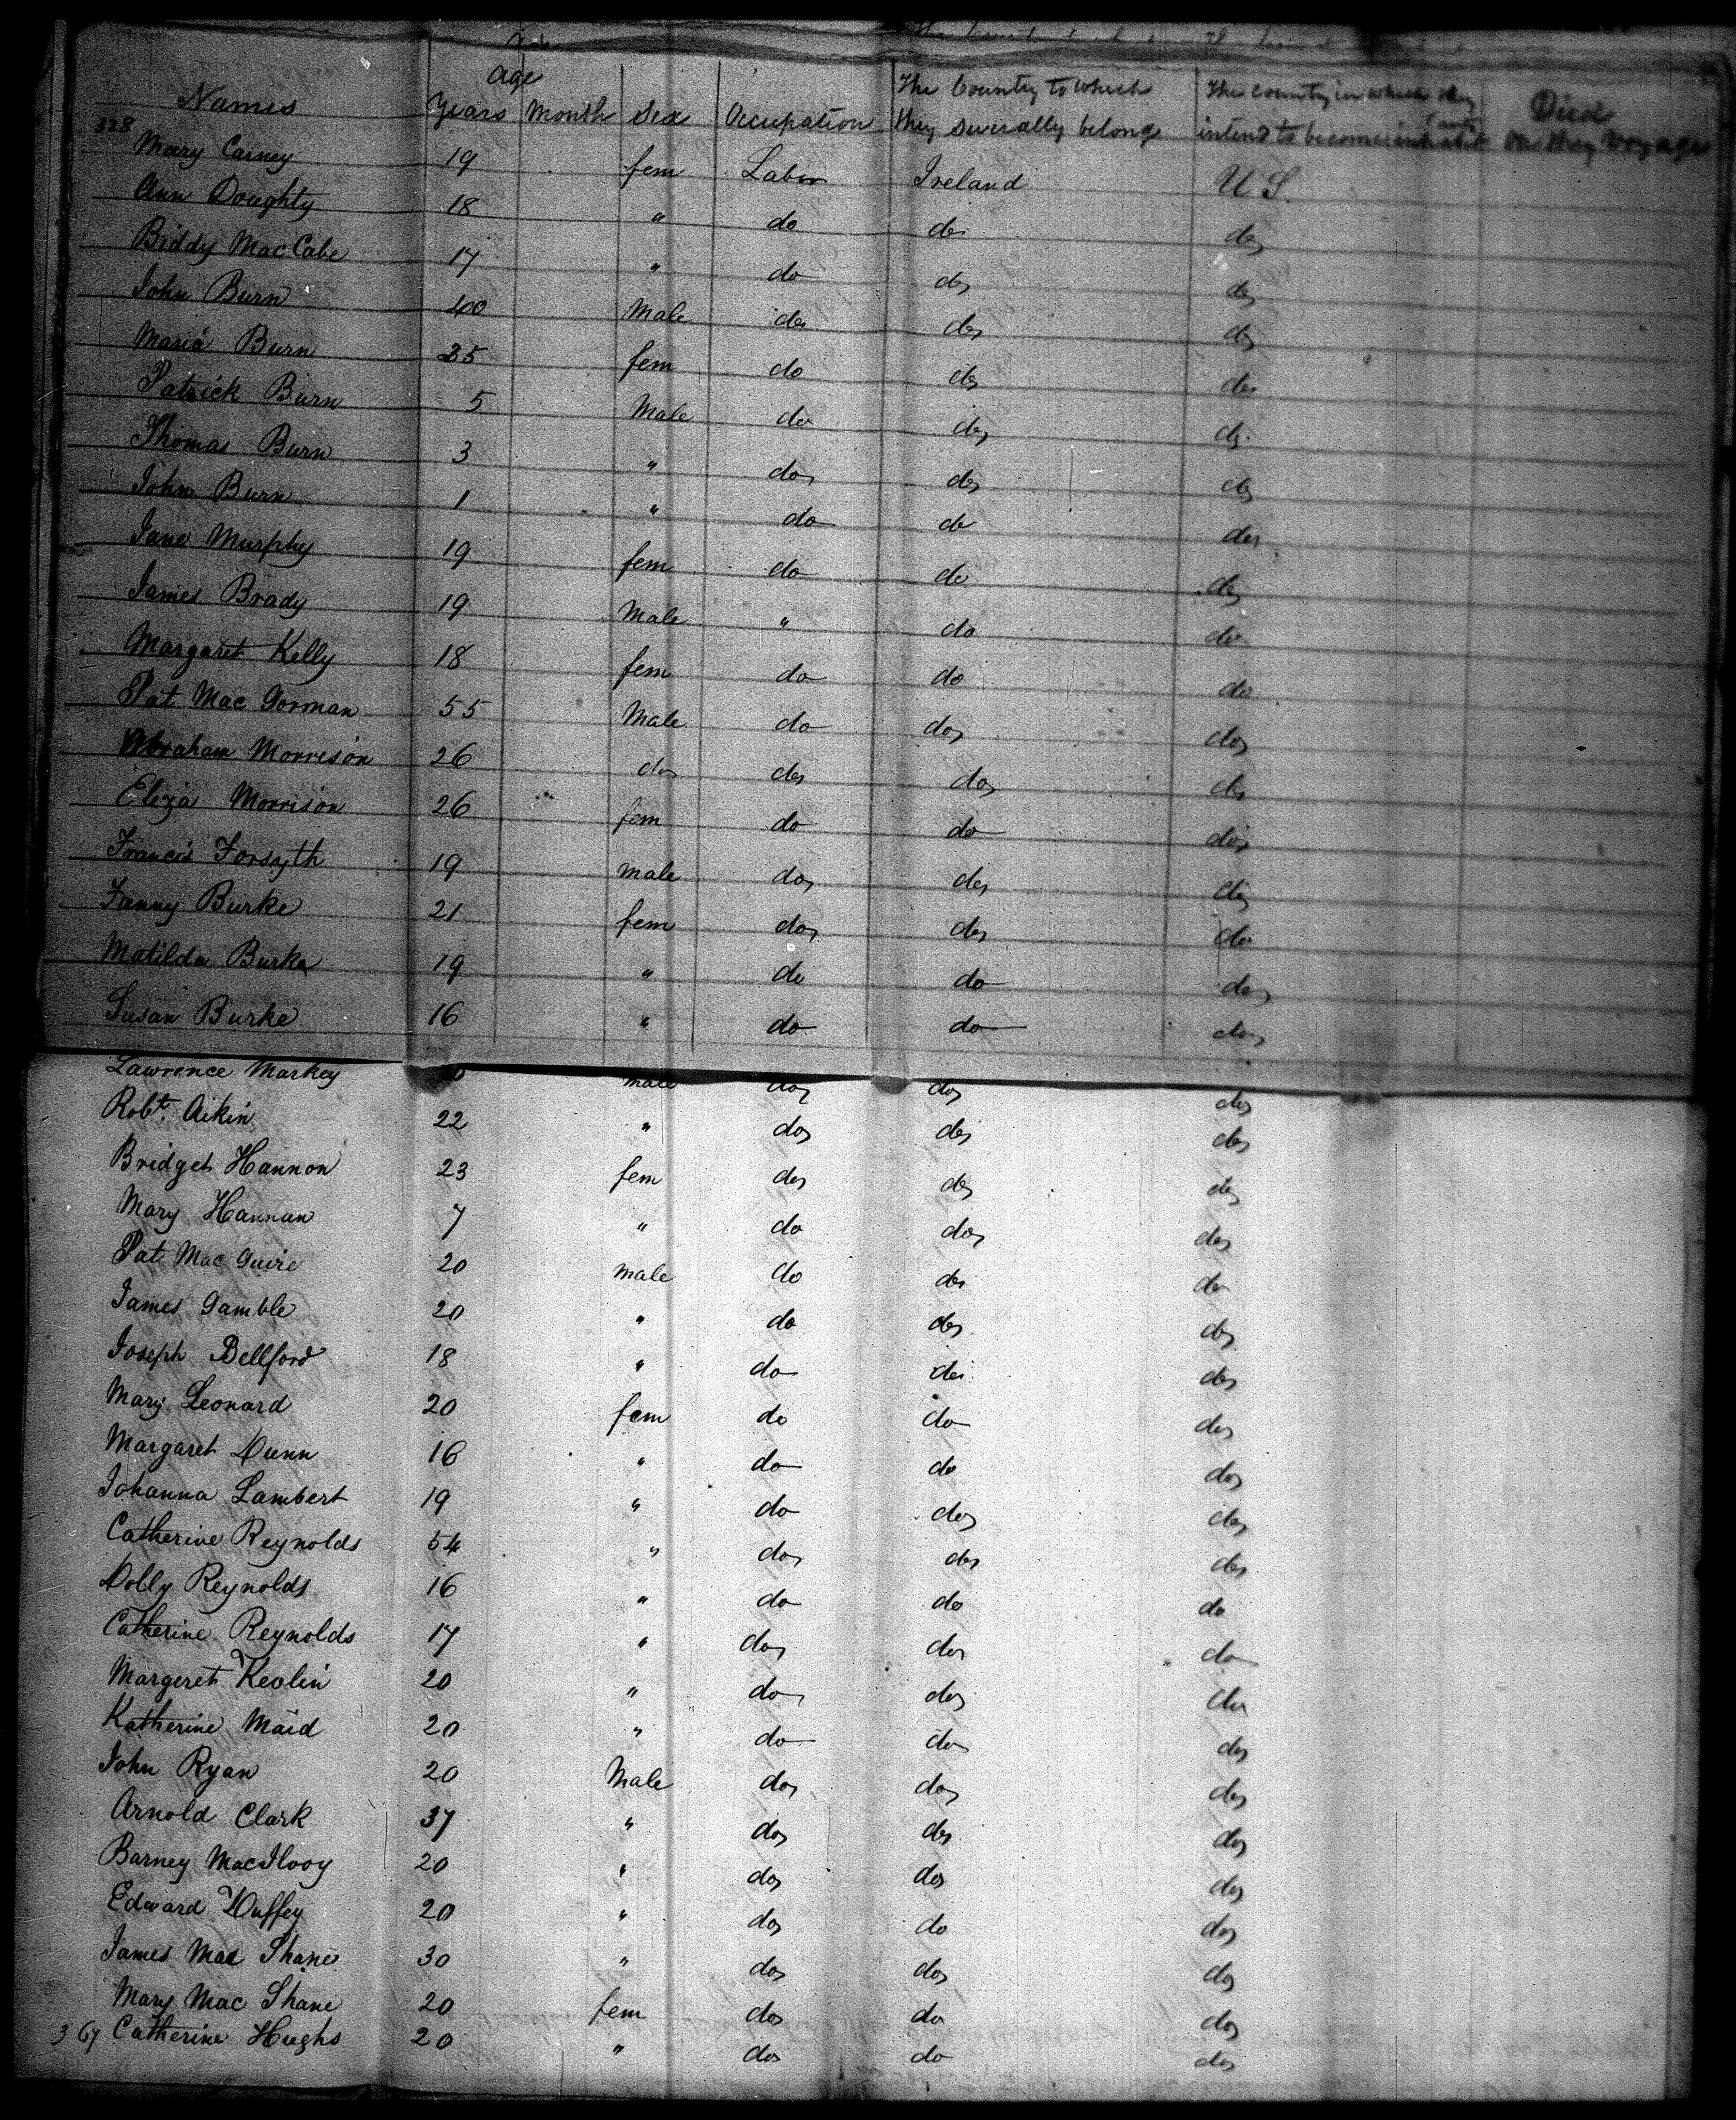 Age
Names Years Month Sex Occupation The Country to which they severally belong The country in which they intend to become inhabitants Died on they voyage
328
Mary Carney 19 fem Labor Ireland U S.
Ann Doughty 18 " do do do
Biddy MacCabe 17 " do do do
John Burn 40 Male do do do
Maria Burn 35 fem do do do
Patrick Burn 5 Male do do do
Thomas Burn 3 " do do do
John Burn 1 " do do do
Jane Murphy 19 fem do do do
James Brady 19 Male " do do
Margaret Kelly 18 fem do do do
Pat Mac Gorman 55 Male do do do
Abraham Morrison 26 do do do do
Eliza Morrison 26 fem do do do
Francis Forsyth 19 male do do do
Fanny Burke 21 fem do do do
Matilda Burke 19 " do do do
Susan Burke 16 " do do do
Lawrence Markey male do do do
Robt. Aikin 22 " do do do
Bridget Hannon 23 fem do do do
Mary Hannan 7 " do do do
Pat Mac Guire 20 male do do do
James Gamble 20 " do do do
Joseph Bellford 18 " do do do
Mary Leonard 20 fem do do do
Margaret Dunn 16 " do do do
Johanna Lambert 19 " do do do
Catherine Reynolds 54 " do do do
Dolly Reynolds 16 " do do do
Catherine Reynolds 17 " do do do
Margeret Keolin 20 " do do do
Katherine Maid 20 " do do do
John Ryan 20 Male do do do
Arnold Clark 37 " do do do
Barney MacIlooy 20 " do do do
Edward Duffey 20 " do do do
James Mac Shane 30 " do do do
Mary Mac Shane 20 fem do do do
367 Catherine Hughs 20 " do do do